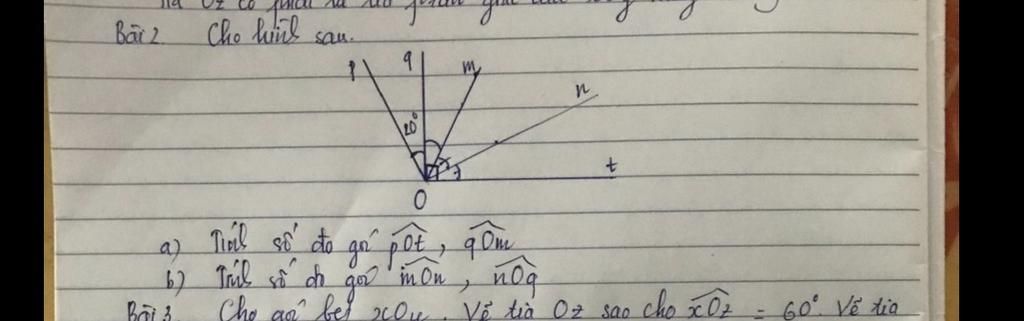 Oz có phải là tia phân giác của
Bài 2. Cho hình sau.
p q m n
20°
t
O
a) Tính số đo góc pOt, qOm
b) Tính số đo góc mOn, nOq
Bài 3 Cho góc bẹt xOy. Vẽ tia Oz sao cho xOz = 60°. Vẽ tia